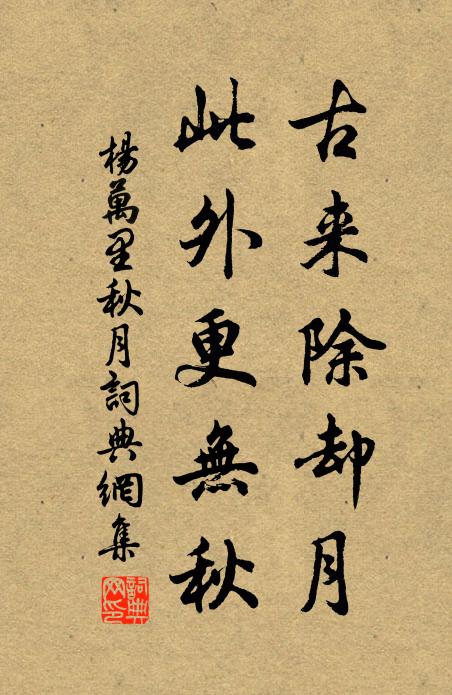 古来除却月
此外更無秋
楊萬里秋月詞典網集
詞典网印